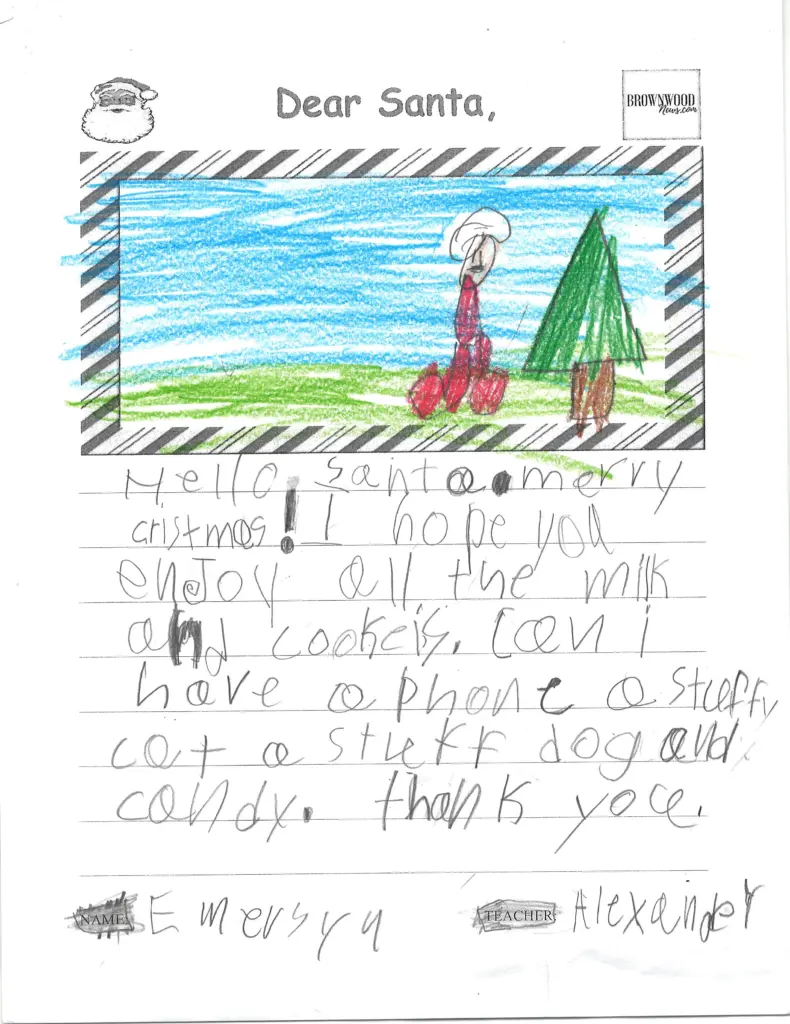 Dear Santa,
BROWNWOOD
News.com
Hello, Santa. merry
cristmas! I hope you
enJoy all the milk
and cookeis. Can i
have a phone a stuffy
cat a stuff dog and
candy. thank you.
NAME Emersyn
TEACHER Alexander